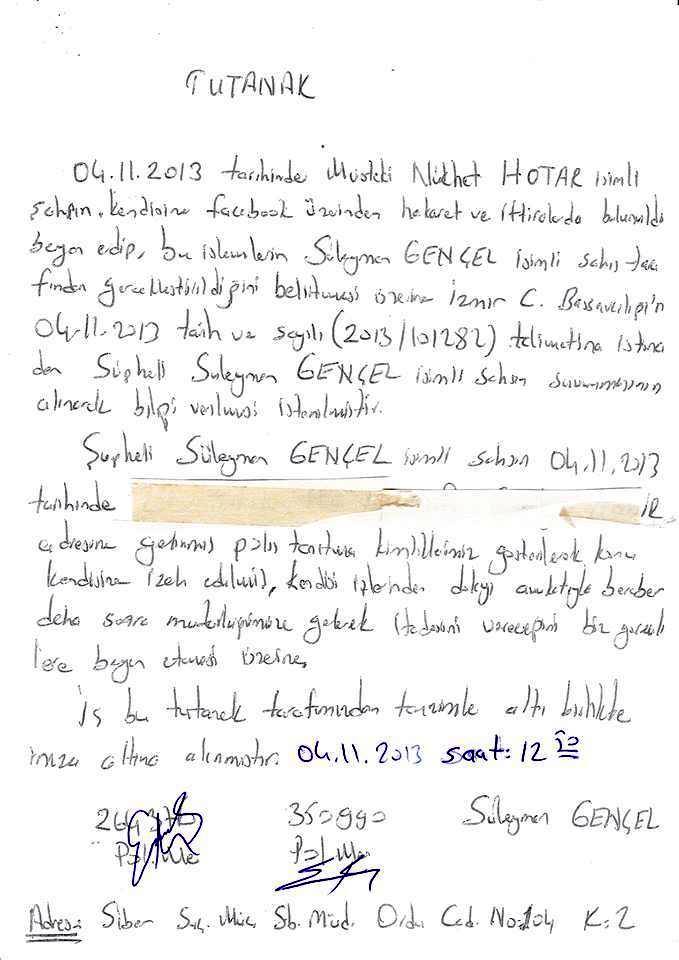 TUTANAK
04.11.2013 tarihinde Müşteki Nükhet HOTAR isimli
şahsın, kendisine facebook üzerinden hakaret ve iftiralarda bulunuldu
beyan edip, bu işlemlerin Süleyman GENÇEL isimli şahıs tara
fından gerçekleştirildiğini belirtmesi üzerine İzmir C. Başsavcılığı'n
04.11.2013 tarih ve sayılı (2013/101282) talimatına istina
den Şüpheli Süleyman GENÇEL isimli şahsın savunmasının
alınarak bilgi verilmesi istenilmiştir.
Şüpheli Süleyman GENÇEL isimli şahsın 04.11.2013
tarihinde İR
adresine gelinmiş polis tanıtma kimliklerimiz gösterilerek konu
kendisine izah edilmiş, kendisi işlerinden dolayı avukatıyla beraber
daha sonra müdürlüğümüze gelerek ifadesini vereceğini biz görevli
lere beyan etmesi üzerine,
İş bu tutanak tarafımızdan tanzimle altı birlikte
imza altına alınmıştır. 04.11.2013 saat: 12
350990 Süleyman GENÇEL
Pol. Me Pol. Me
Adres: Siber Suç. Müc. Şb. Müd. Ordu Cad. No:104 K:2